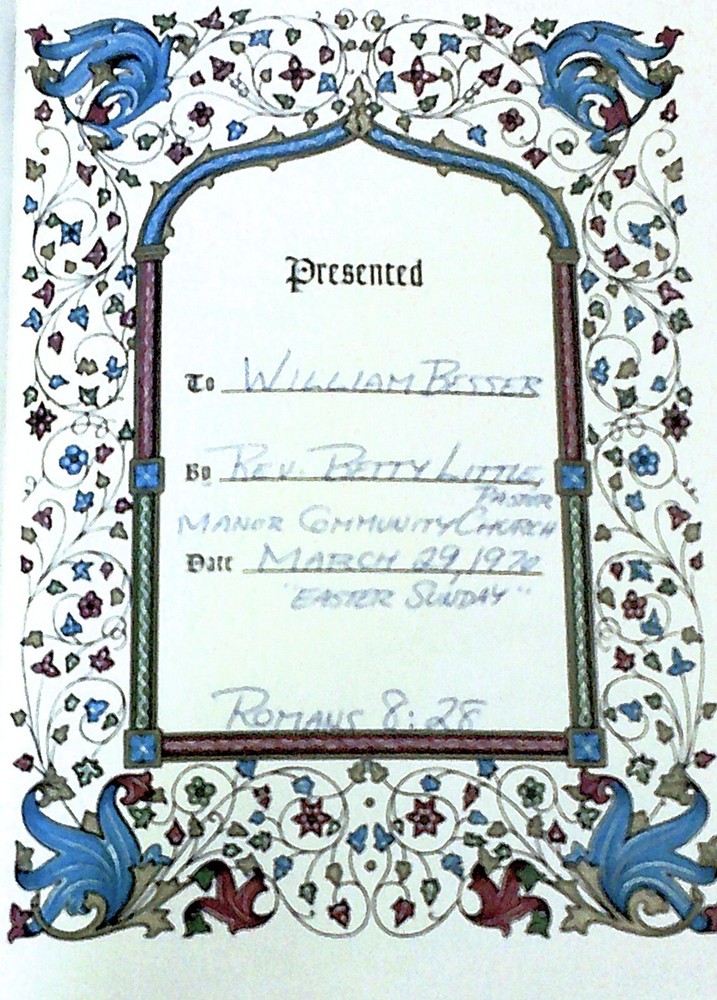 Presented
To WILLIAM BESSER
By REV. BETTY LITTLE,
PASTOR
MANOR COMMUNITY CHURCH
Date MARCH 29, 1970
"EASTER SUNDAY"
ROMANS 8:28